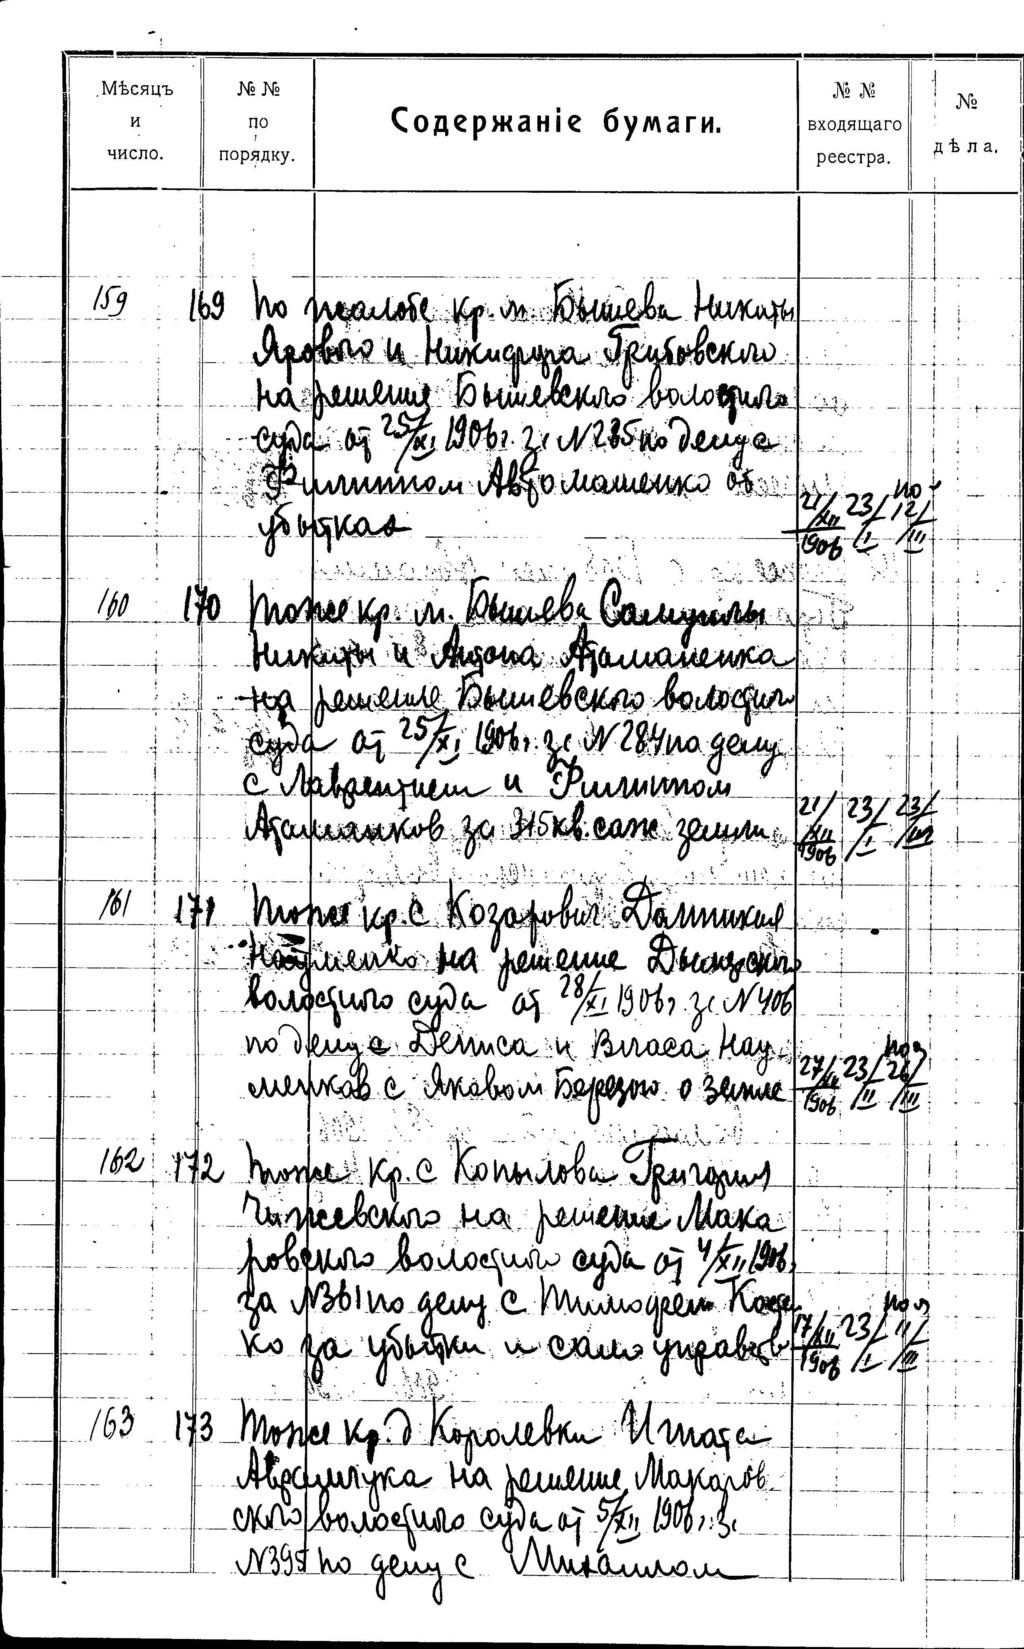 Мѣсяцъ и число.
№ № по порядку.
Содержаніе бумаги.
№ № входящаго реестра.
№ дѣла.
159 169 По жалобе кр. м. Бышева Никиты
Ярового и Никифора Грибовского
на решение Бышевского волостного
суда от 25/XI 1906 г. за N 285 по делу с
Филиппом Автомашенко об
убытках
21/XII 1906 23/I 12/III
160 170 Тоже кр. м. Бышева Самуилы
Никиты и Антона Атаманенка
на решение Бышевского волостного
суда от 25/XI 1906 г. за N 284 по делу
с Лаврентием и Филиппом
Атаманков за 315 кв. саж земли
21/XII 1906 23/I 23/III
161 171 Тоже кр. с Козарович
Науменко на решение Дымерского
волостного суда от 28/XI 1906 г. за N 406
по делу с Дениса и Власа Нау
менков с Яковом Березою о земле
27/XII 1906 23/II 26/III
162 172 Тоже кр. с Копылова Григория
Чижевского на решение Мака
ровского волостного суда от 4/XII 1906
за N 361 по делу с Тимофеем
ко за убытки и самоуправство
17/XII 1906 23/I 11/III
163 173 Тоже кр. д Королевки Игната
Аврамчука на решение Макаров
ского волостного суда от 5/XII 1906 г. за
N 395 по делу с Михаилом